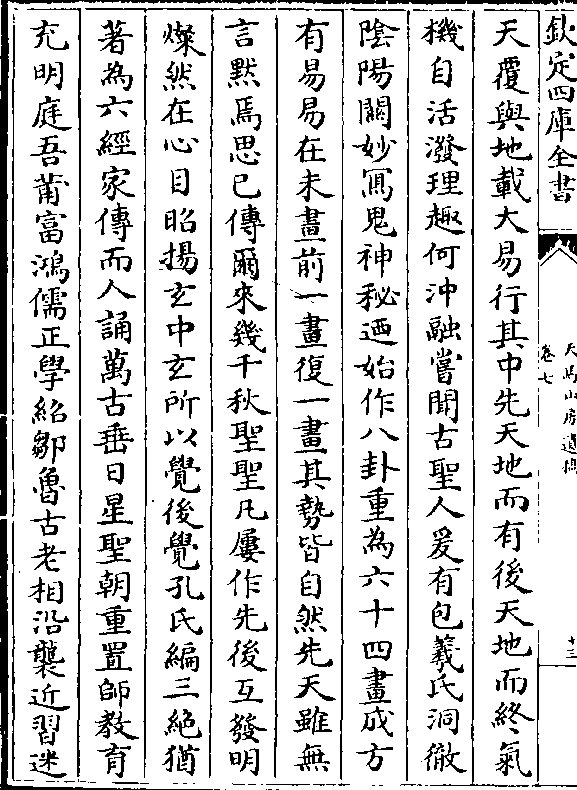 欽定四庫全書
天馬山房遺稿
卷七
十三
天覆與地載大易行其中先天地而有後天地而終氣
機自活潑理趣何沖融嘗聞古聖人爰有包羲氏洞徹
陰陽關妙冩鬼神秘迺始作八卦重為六十四畫成方
有易易在未畫前一畫復一畫其勢皆自然先天雖無
言黙焉思已傳爾來幾千秋聖聖凡屢作先後互發明
燦然在心目昭揚玄中玄所以覺後覺孔氏編三絶猶
著為六經家傳而人誦萬古垂日星聖朝重置師教育
充明庭吾莆富鴻儒正學紹鄒魯古老相沿襲近習迷